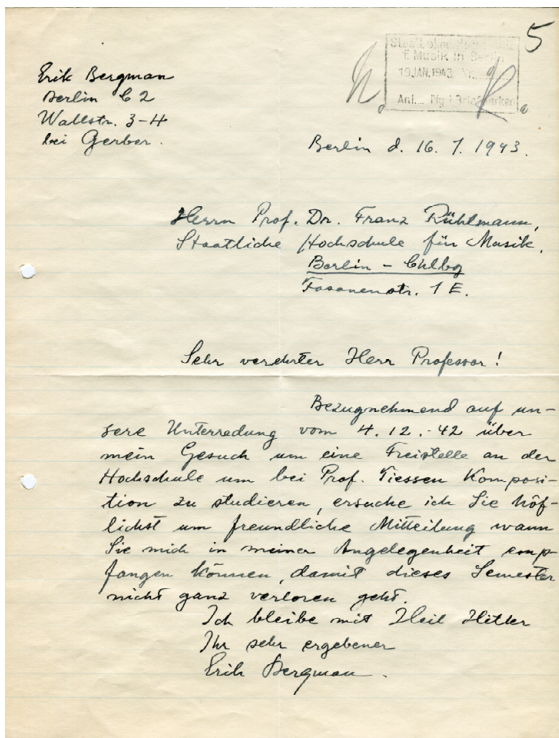 5
Staatl. akademische
f. Musik in Berlin
19.JAN.1943
Anl.
Erik Bergman
Berlin C 2
Wallstr. 3-4
bei Gerber.
Berlin d. 16. 1. 1943.
Herrn Prof. Dr. Franz Rühlmann,
Staatliche Hochschule für Musik.
Berlin - Chlbg
Fasanenstr. 1 E.
Sehr verehrter Herr Professor!
Bezugnehmend auf un-
sere Unterredung vom 4.12.-42 über
mein Gesuch um eine Freistelle an der
Hochschule um bei Prof. Tiessen Komposi-
tion zu studieren, ersuche ich Sie höf-
lichst um freundliche Mitteilung wann
Sie mich in meiner Angelegenheit emp-
fangen können, damit dieses Semester
nicht ganz verloren geht.
Ich bleibe mit Heil Hitler
Ihr sehr ergebener
Erik Bergman.